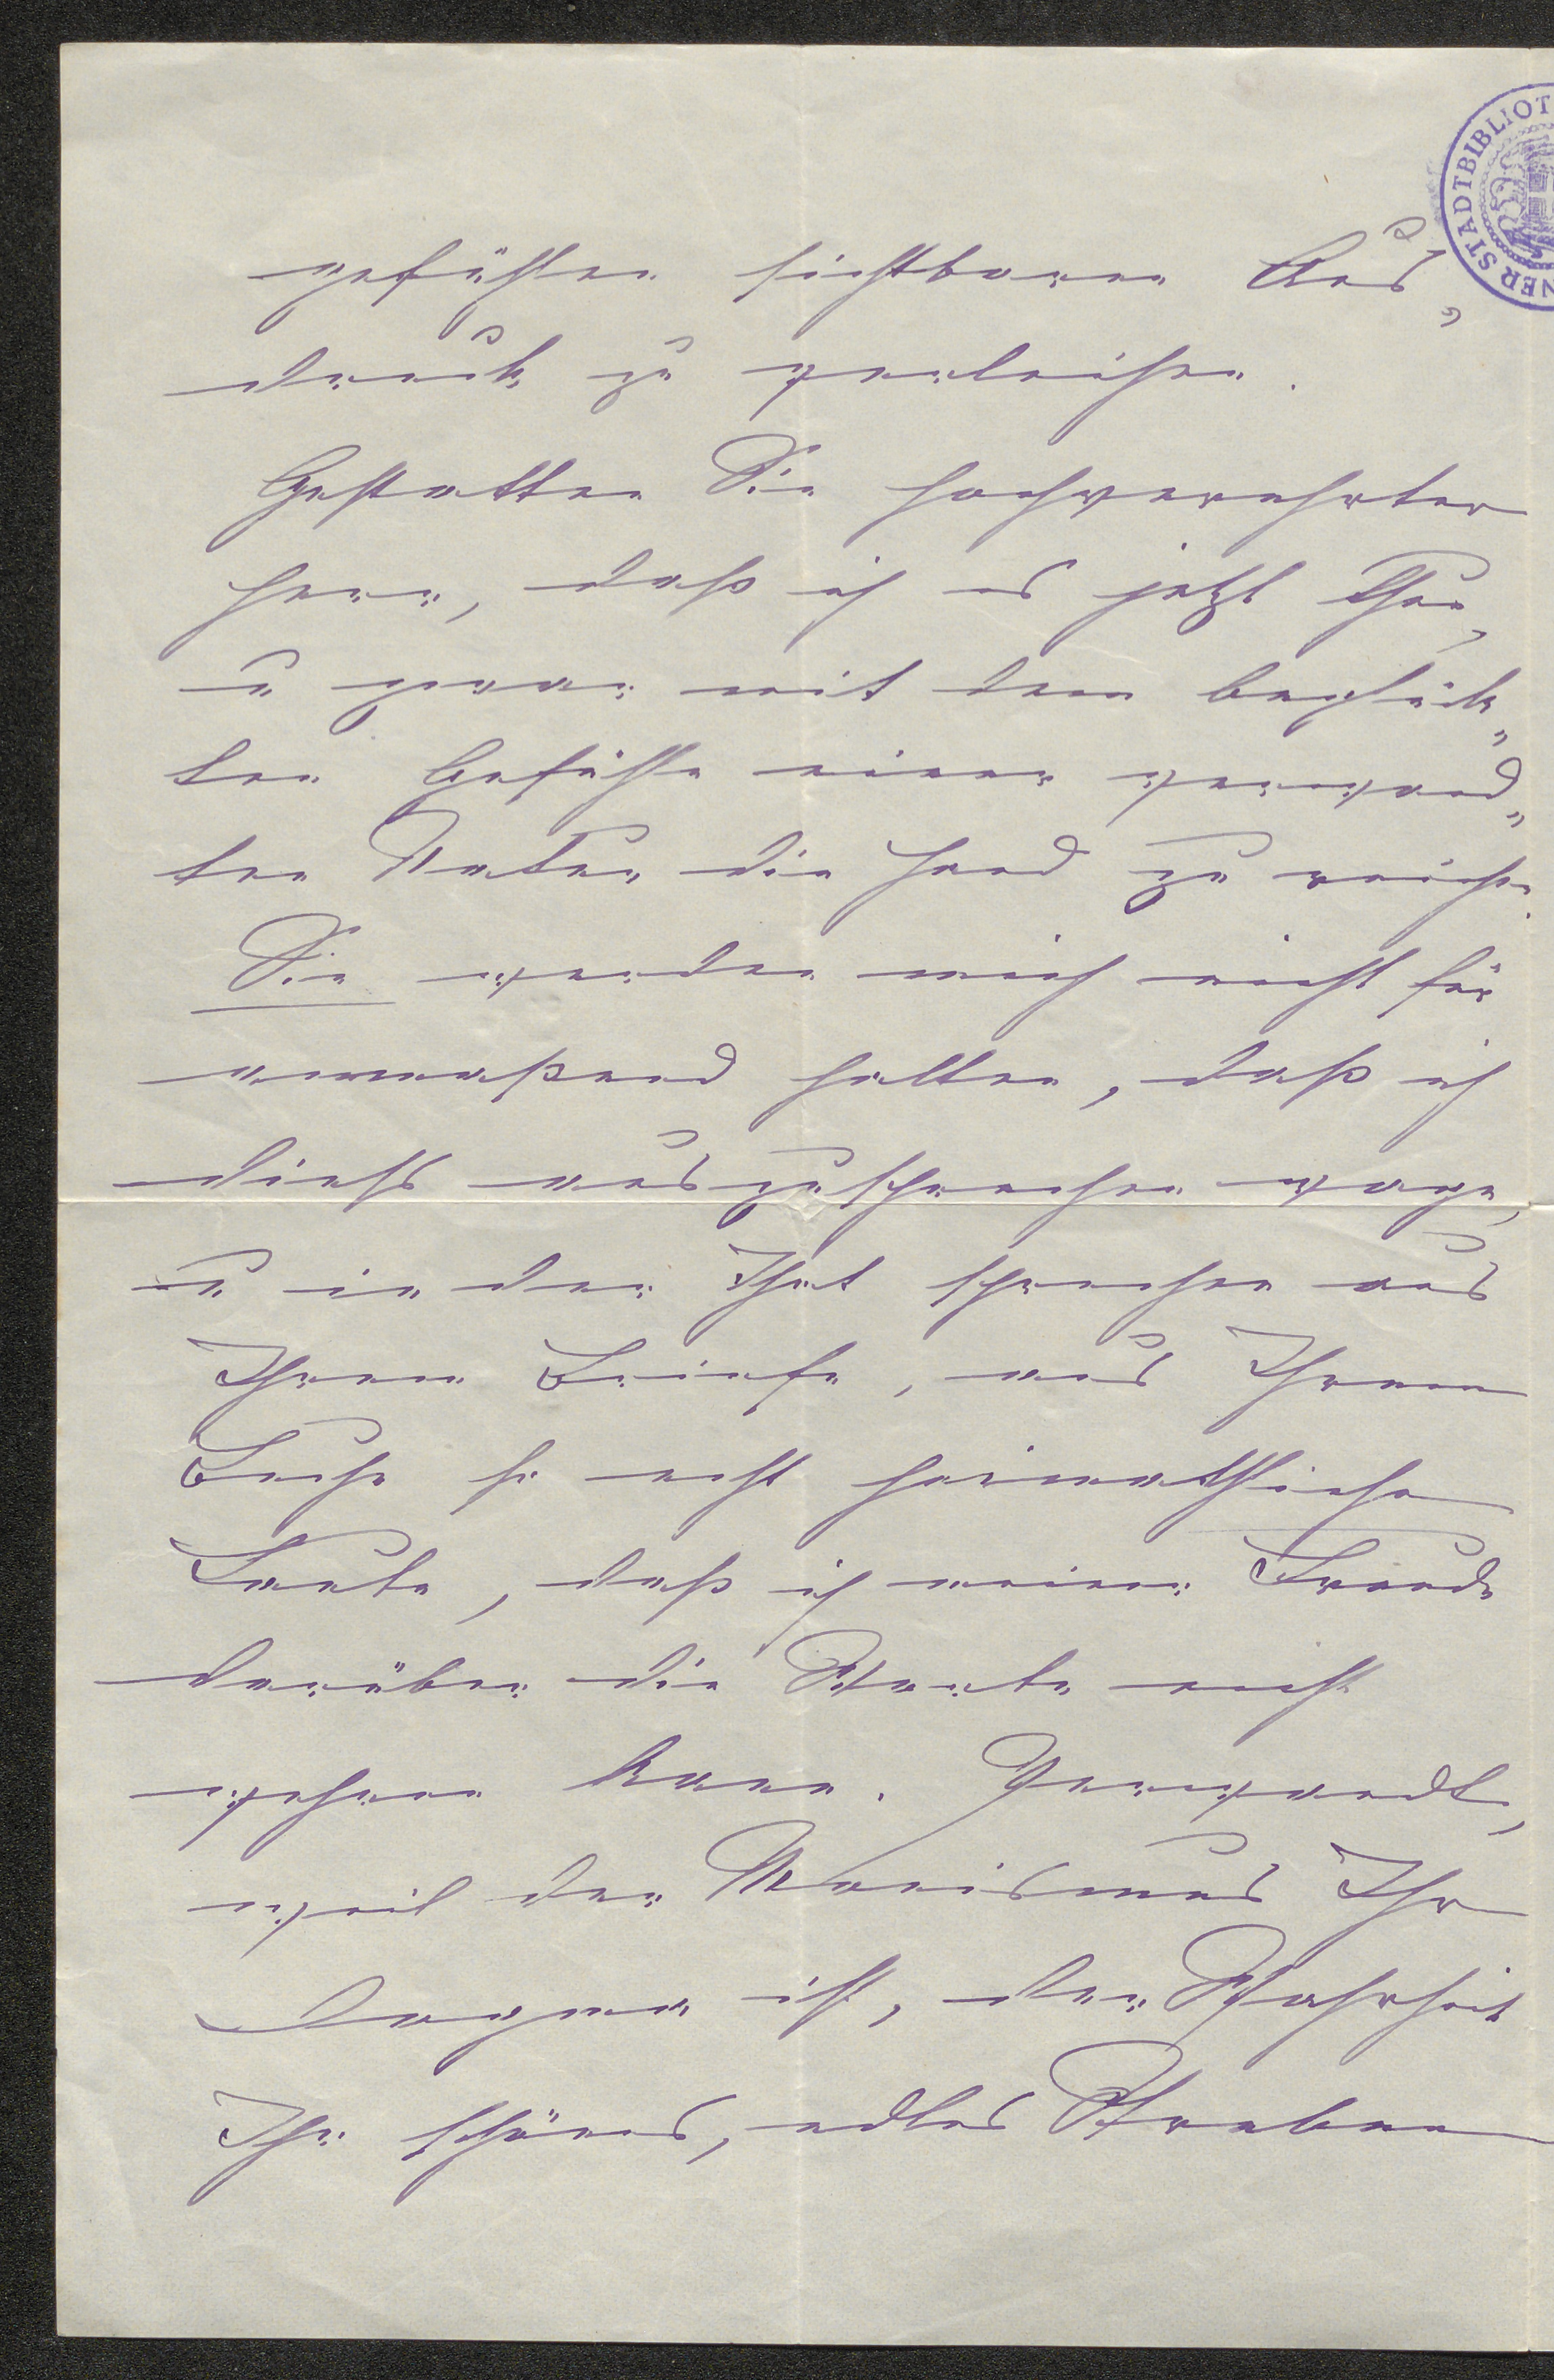 gefühlen sichtbaren Aus„
druck zu verleihen.
Gestatten Sie hochverehrter
Herr, daß ich es jetzt thue,
u zwar mit dem beglück„
ten Gefühle einer verwand„
ten Natur die Hand zu reichen.
Sie werden mich nicht für
anmaßend halten, daß ich
dieß auszusprechen wage,
u in der That sprechen aus
Ihrem Briefe, aus Ihrem
Buche so echt heimathliche
Laute, daß ich meiner Freude
darüber die Worte nicht
wehren kann. Verwandt,
weil der Monismus Ihr
Dogma ist, der Wahrheit
Ihr schönes, edles Streben
NER STADTBIBLIOT